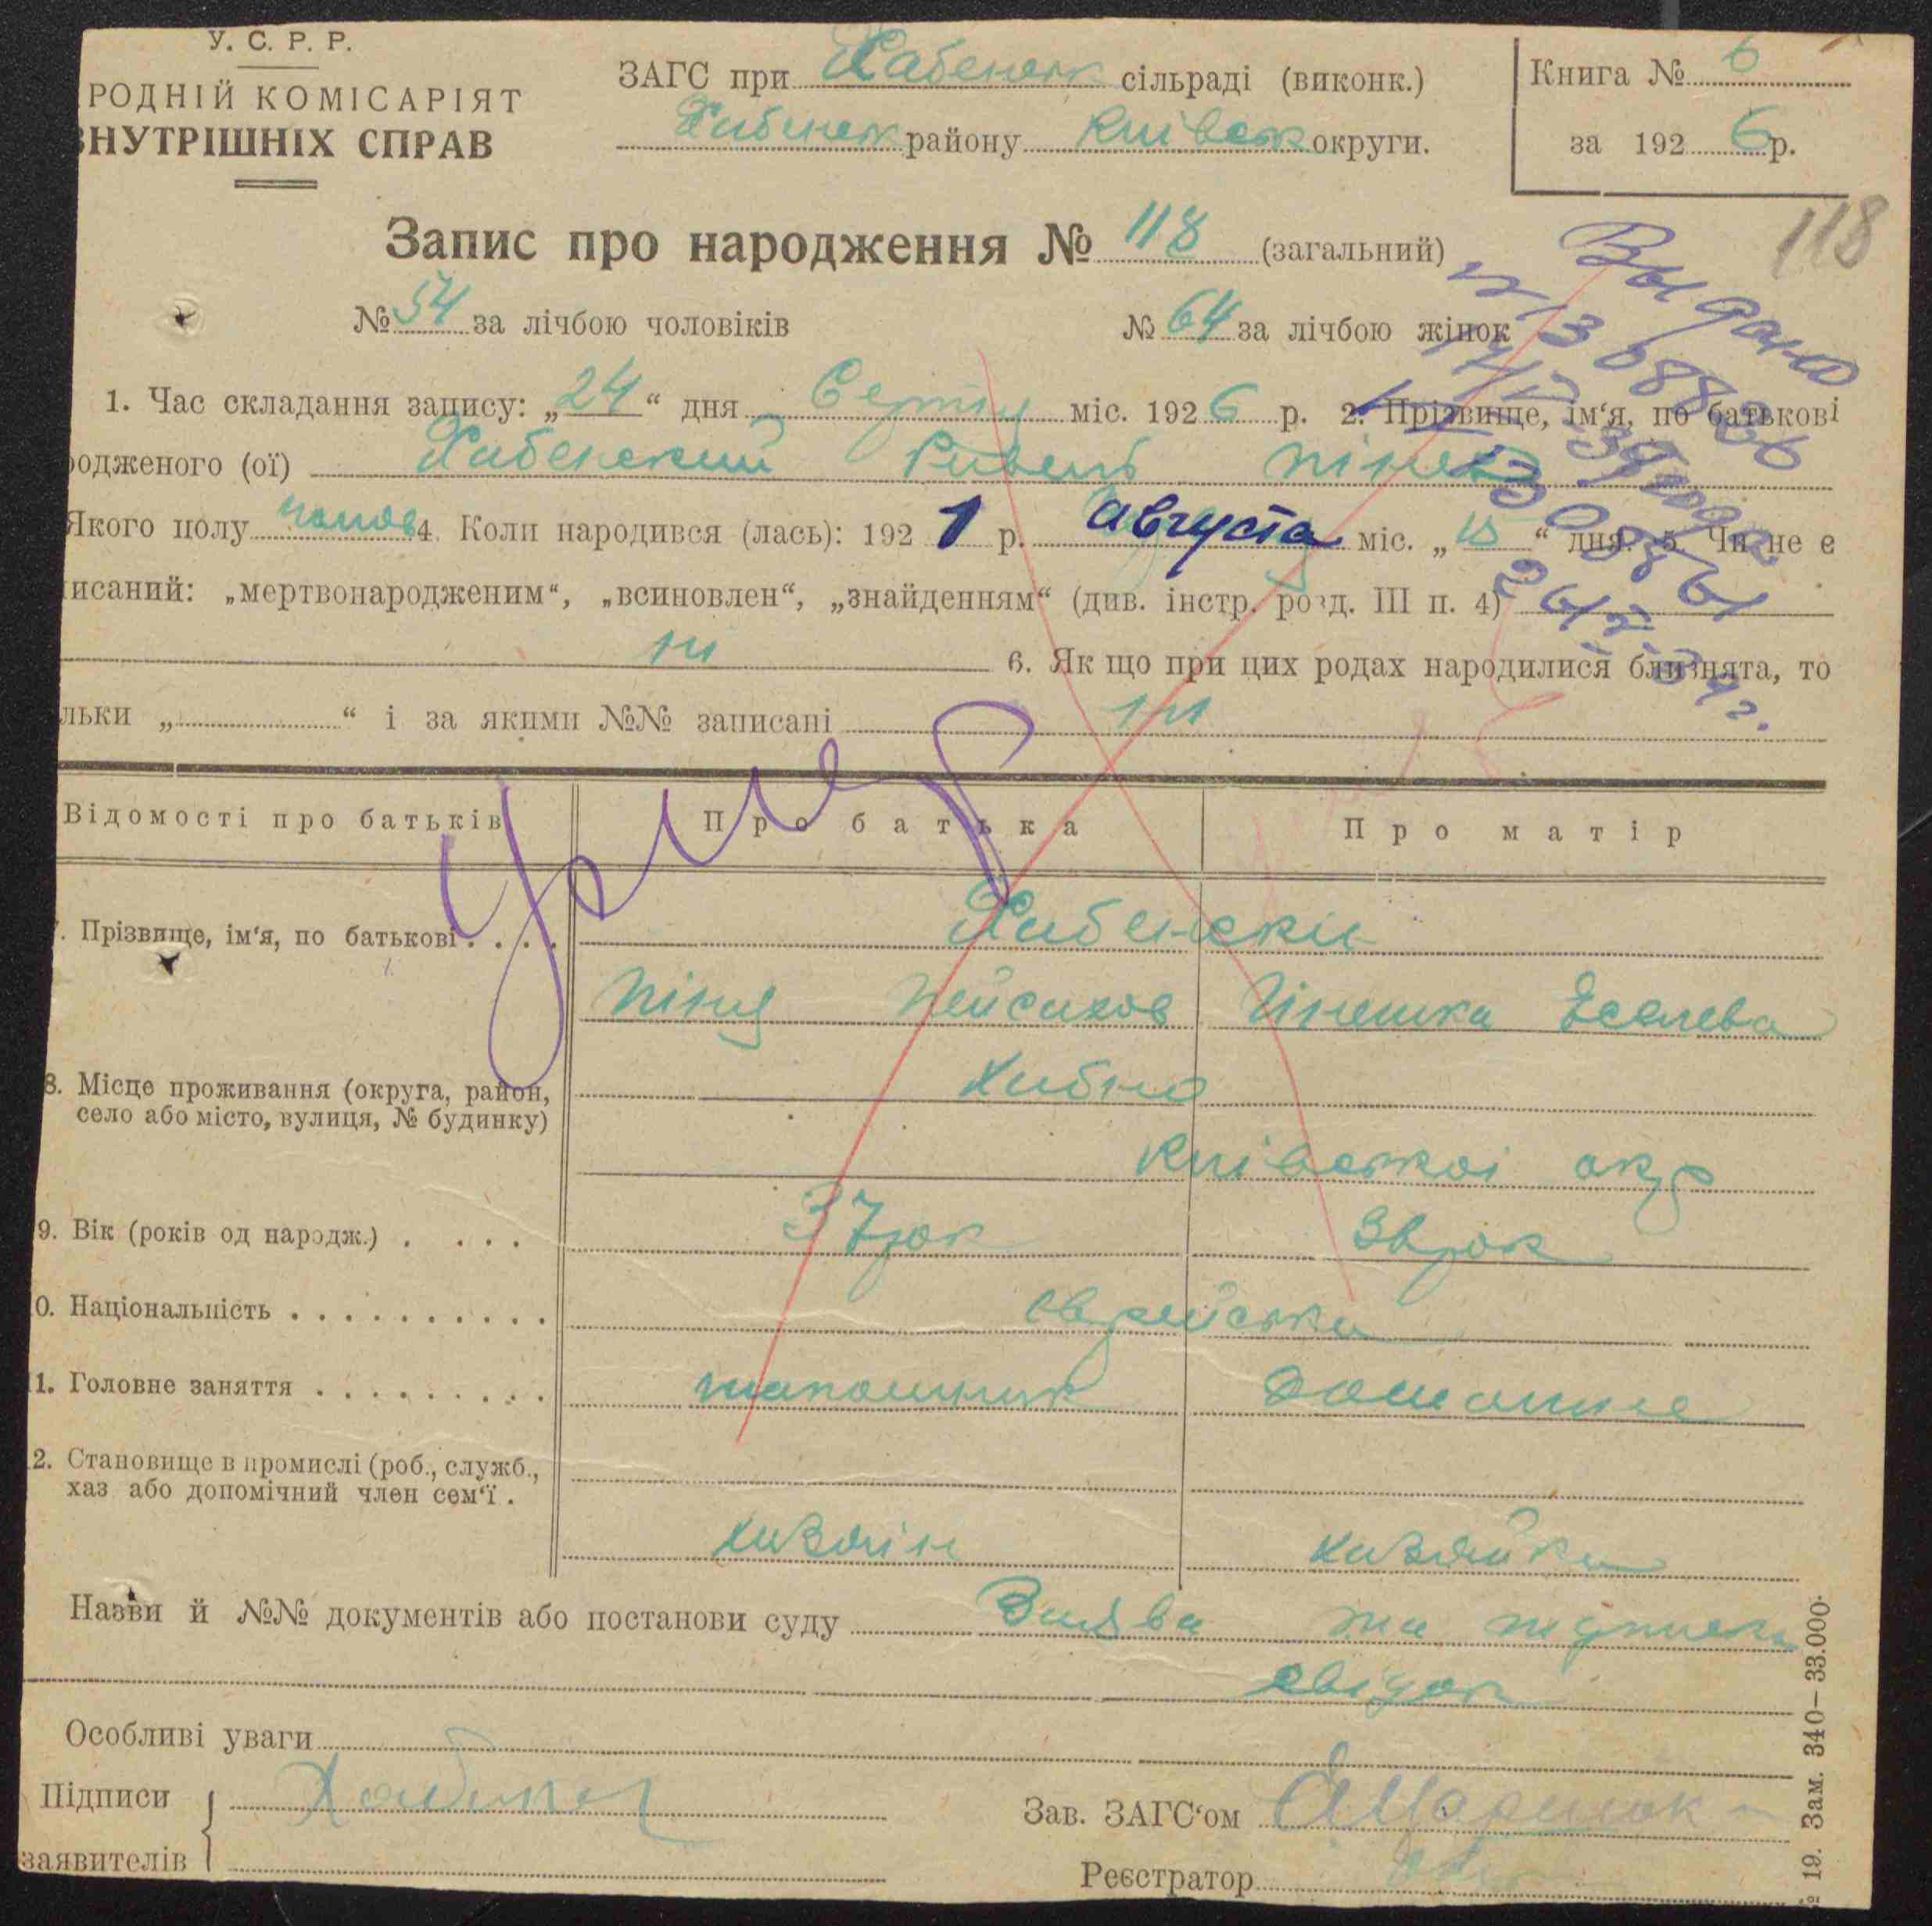 У. С. Р. Р.
РОДНІЙ КОМІСАРІЯТ
ВНУТРІШНІХ СПРАВ
ЗАГС при Хабенськ сільраді (виконк.)
Хабенськ району Київськ округи.
Книга № 6
за 192 6 р.
118
Запис про народження № 118 (загальний)
№ 54 за лічбою чоловіків № 64 за лічбою жінок
Выдано
1. Час складання запису: „24“ дня Серпня міс. 192 6 р. 2. Прізвище, ім‘я, по батькові
родженого (ої) Хабенский Рувень Пінев
Якого полу чолов 4. Коли народився (лась): 192 1 р. августа міс. „15“ дня. 5. Чи не є
писаний: „мертвонародженим“, „всиновлен“, „знайденням“ (див. інстр. розд. III п. 4)
ні 6. Як що при цих родах народилися близнята, то
льки „ “ і за якими №№ записані ні
Відомості про батьків Про батька Про матір
7. Прізвище, ім‘я, по батькові . . . . Хабенски
Піня Пейсахов Еселева
умер
8. Місце проживання (округа, район, Хабно
село або місто, вулиця, № будинку)
Київської окр
9. Вік (років од народж.) . . . . 37 рок рок
0. Національність . . . . . . . . . . єврейська
11. Головне заняття . . . . . . . . . шапошник домашнє
2. Становище в промислі (роб., служб.,
хаз або допомічний член сем‘ї .
хазяїн хазяйка
Назви й №№ документів або постанови суду Заява та підписка
свідок
Особливі уваги
Підписи
заявителів
Зав. ЗАГС‘ом
Реєстратор
№ 19. Зам. 340—33.000.